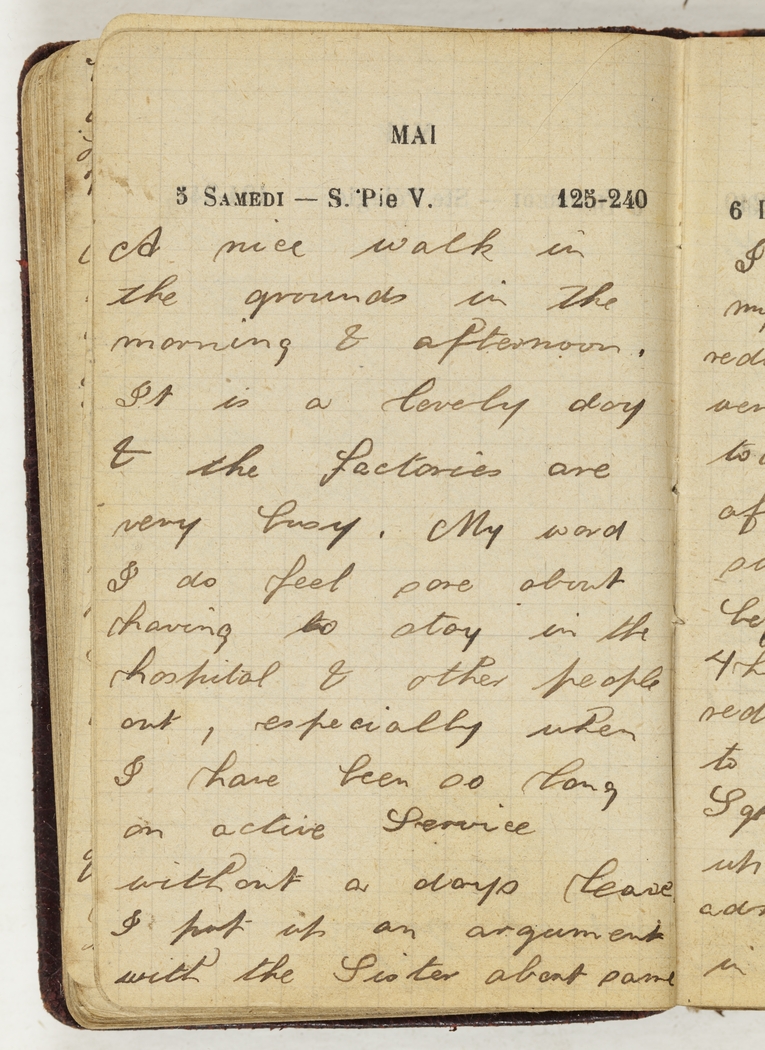 MAI
5 SAMEDI — S. Pie V. 125-240
A nice walk in
the grounds in the
morning & afternoon.
It is a lovely day
& the factories are
very busy. My word
I do feel sore about
having to stay in the
hospital & other people
out, especially when
I have been so long
on active Service
without a days leave
I put up an argument
with the Sister about same
6
I
to
of
4
to
in